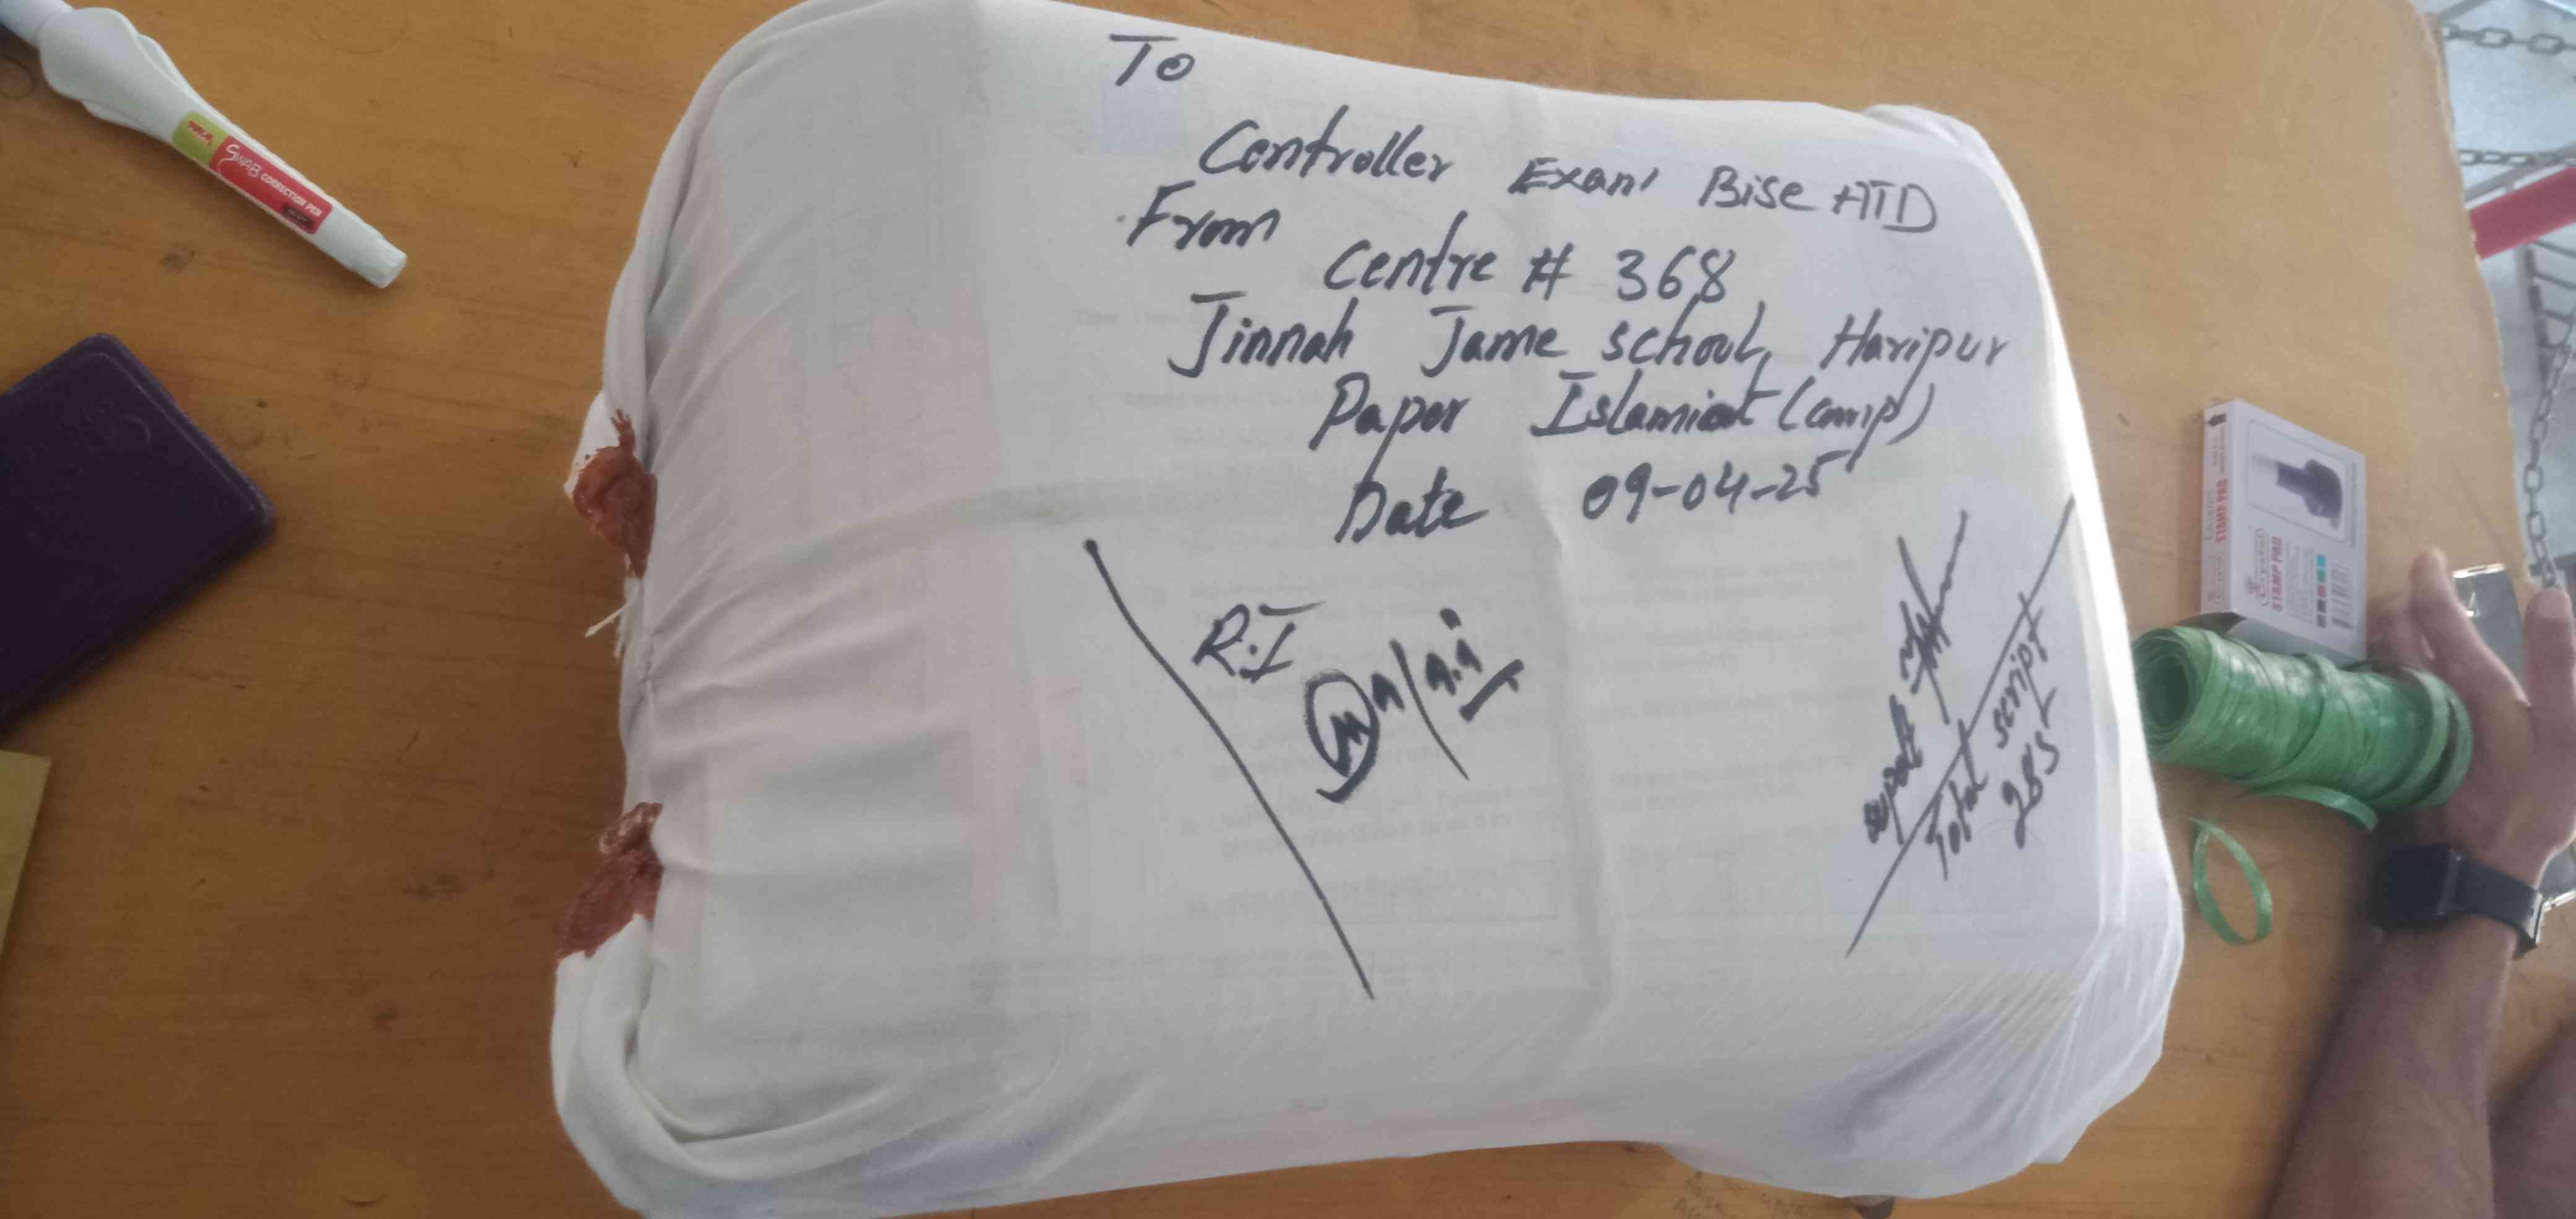 To
Controller Exam Bise ATD
From
Centre # 368
Jinnah Jame school, Haripur
Paper Islamiat (comp)
Date 09-04-25
R.I
Total script
285
SWAB CORRECTION PEN
Crystal
STAMP PAD
STAMP PAD